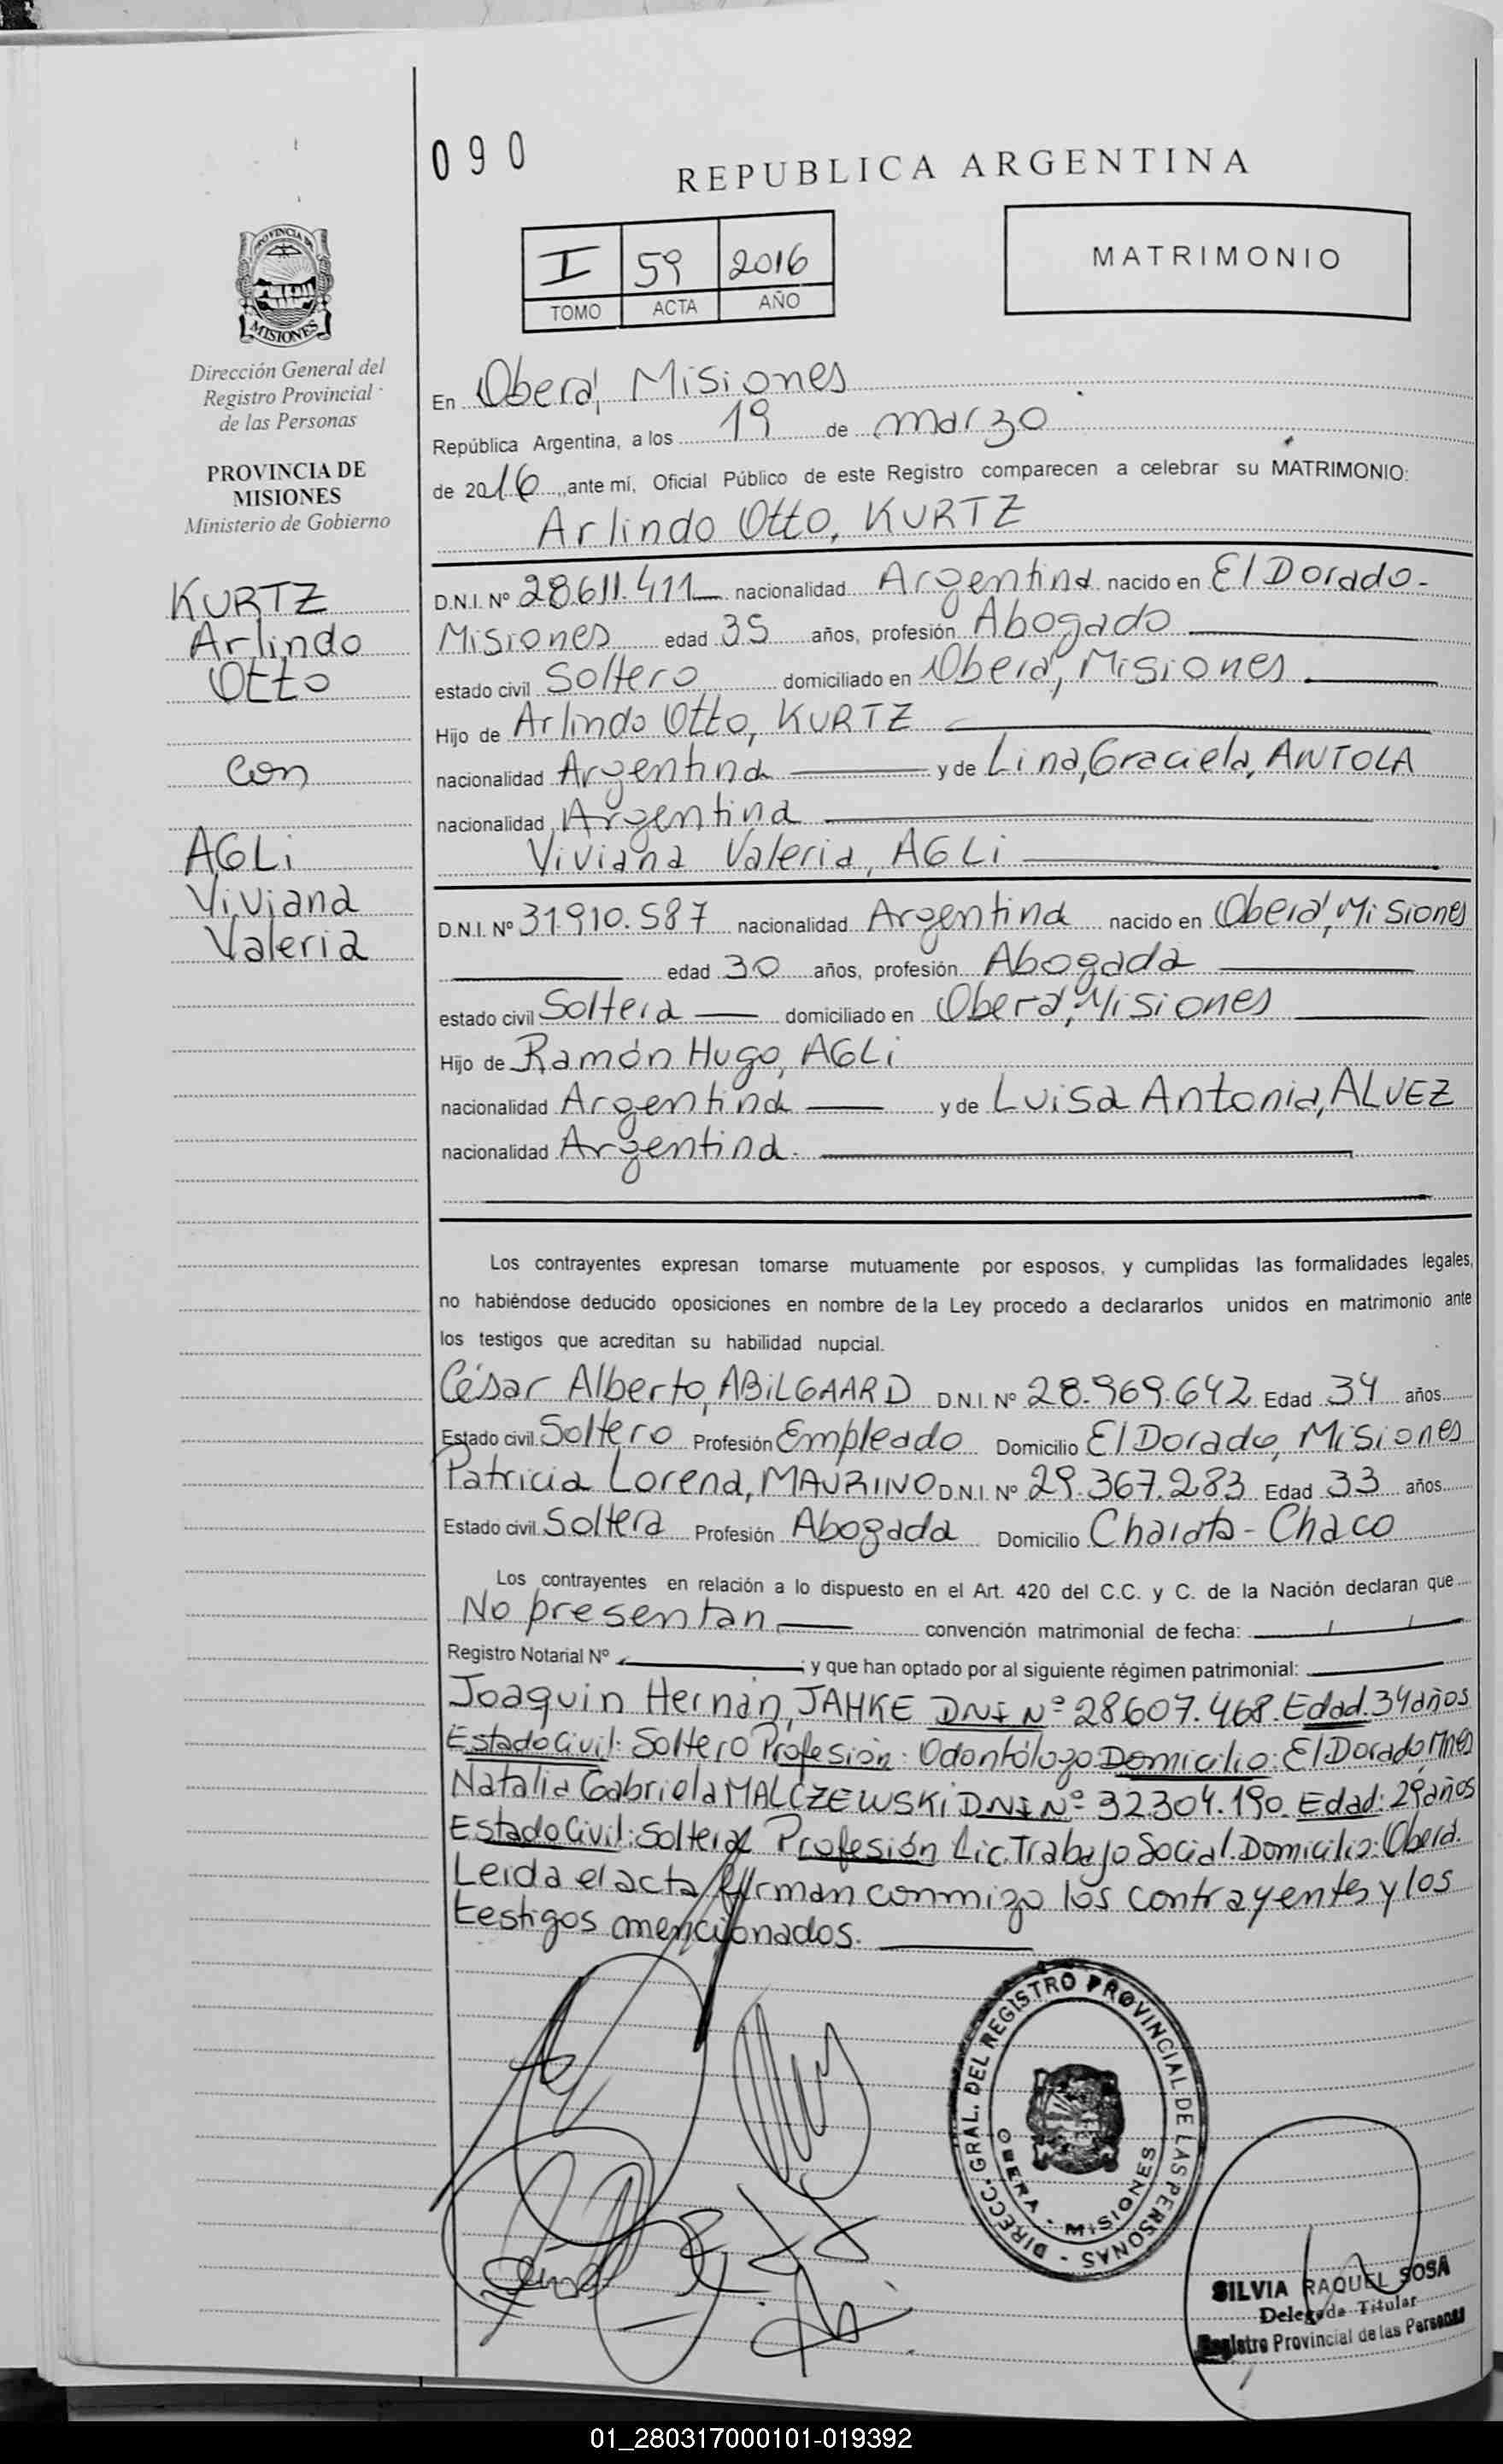 090
REPUBLICA ARGENTINA
I 59 2016
TOMO ACTA AÑO
MATRIMONIO
PROVINCIA DE
MISIONES
Dirección General del
Registro Provincial
de las Personas
PROVINCIA DE
MISIONES
Ministerio de Gobierno
KURTZ
Arlindo
Otto
con
AGLi
Viviana
Valeria
En Oberá, Misiones
República Argentina, a los 19 de marzo
de 2016, ante mí, Oficial Público de este Registro comparecen a celebrar su MATRIMONIO:
Arlindo Otto, KURTZ
D.N.I. Nº 28.611.411 nacionalidad Argentina nacido en El Dorado-
Misiones edad 35 años, profesión Abogado
estado civil Soltero domiciliado en Oberá, Misiones
Hijo de Arlindo Otto, KURTZ
nacionalidad Argentina y de Lina, Graciela, ANTOLA
nacionalidad Argentina
Viviana Valeria, AGLi
D.N.I. Nº 31.910.587 nacionalidad Argentina nacido en Oberá, Misiones
edad 30 años, profesión Abogada
estado civil Soltera domiciliado en Oberá, Misiones
Hijo de Ramón Hugo, AGLi
nacionalidad Argentina y de Luisa Antonia, ALVEZ
nacionalidad Argentina.
Los contrayentes expresan tomarse mutuamente por esposos, y cumplidas las formalidades legales,
no habiéndose deducido oposiciones en nombre de la Ley procedo a declararlos unidos en matrimonio ante
los testigos que acreditan su habilidad nupcial.
César Alberto, ABiLGAARD D.N.I. Nº 28.969.642 Edad 34 años
Estado civil Soltero Profesión Empleado Domicilio El Dorado, Misiones
Patricia Lorena, MAURINO D.N.I. Nº 29.367.283 Edad 33 años
Estado civil Soltera Profesión Abogada Domicilio Charata - Chaco
Los contrayentes en relación a lo dispuesto en el Art. 420 del C.C. y C. de la Nación declaran que
No presentan convención matrimonial de fecha: / /
Registro Notarial Nº ; y que han optado por al siguiente régimen patrimonial:
Joaquin Hernán, JAHKE DNI Nº 28607.468. Edad. 34 años
Estado Civil: Soltero Profesión: Odontólogo Domicilio: El Dorado, Mnes
Natalia Gabriela MALCZEWSKi DNI Nº 32.304.190. Edad: 29 años
Estado Civil: Soltera Profesión Lic. Trabajo Social. Domicilio: Oberá.
Leida el acta, firman conmigo los contrayentes y los
testigos mencionados.
DIRECC. GRAL. DEL REGISTRO PROVINCIAL DE LAS PERSONAS -
OBERA - MISIONES
SILVIA RAQUEL SOSA
Delegada Titular
Registro Provincial de las Personas
01_280317000101-019392